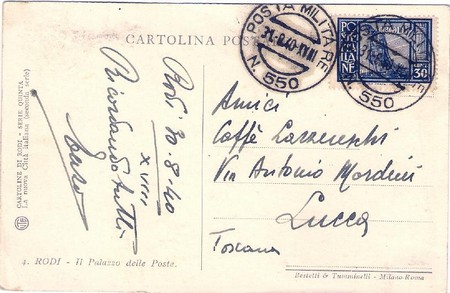 CARTOLINA POS
POSTA MILITARE
31.8.40.XVIII
N. 550
POSTA MILITARE
N. 550
30
CARTOLINE DI RODI - SERIE QUINTA
La nuova Città italiana (seconda serie)
Rodi 30-8-40
XVIII
Ricordando tutti
Amici
Caffè Lazzereschi
Via Antonio Mordini
Lucca
Toscana
4. RODI - Il Palazzo delle Poste.
Bestetti & Tumminelli - Milano-Roma